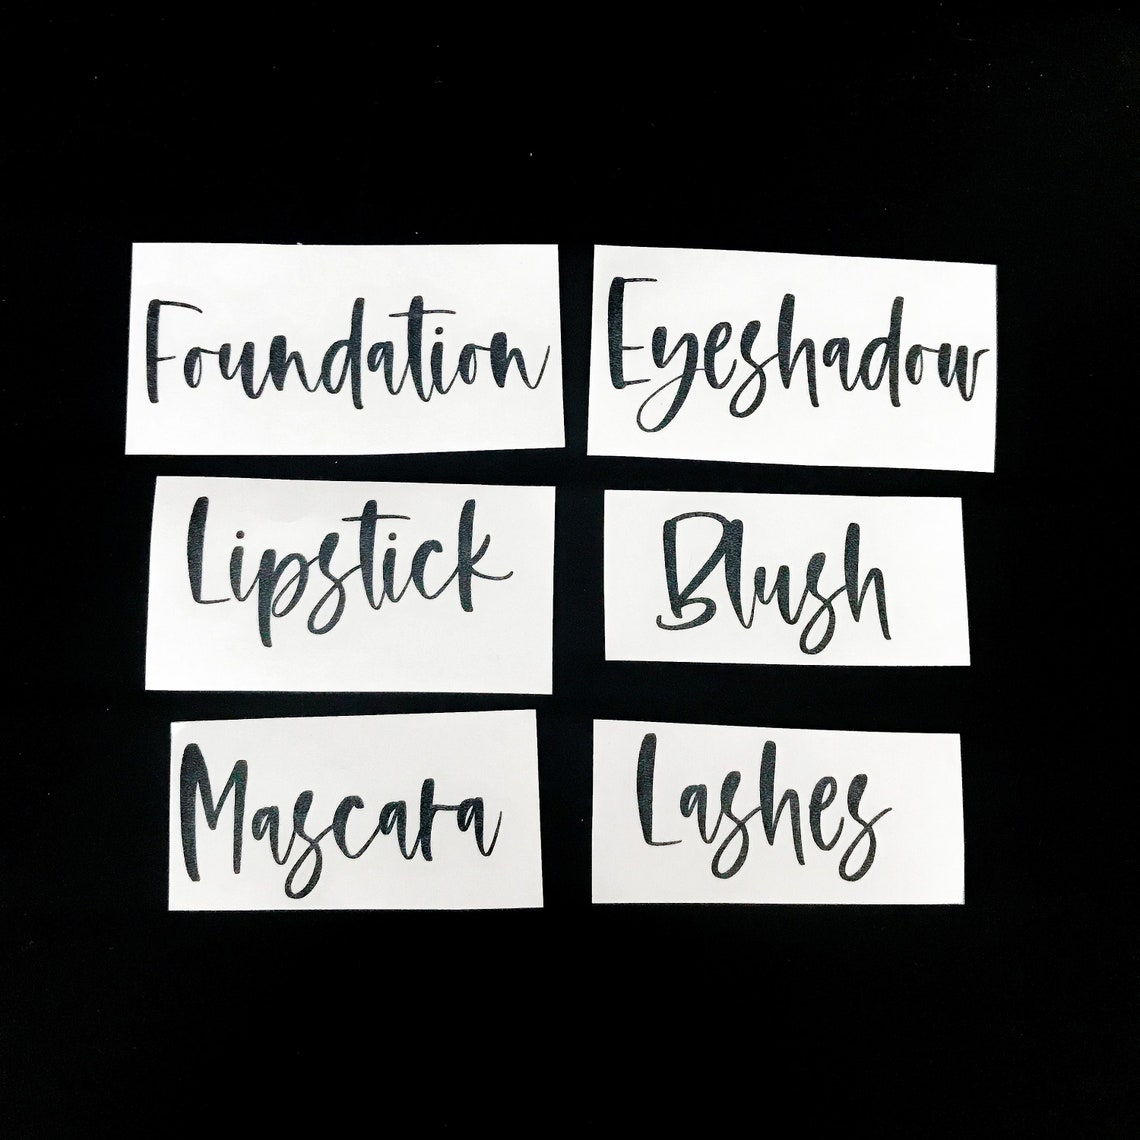 Foundation
Eyeshadow
Lipstick
Blush
Mascara
Lashes